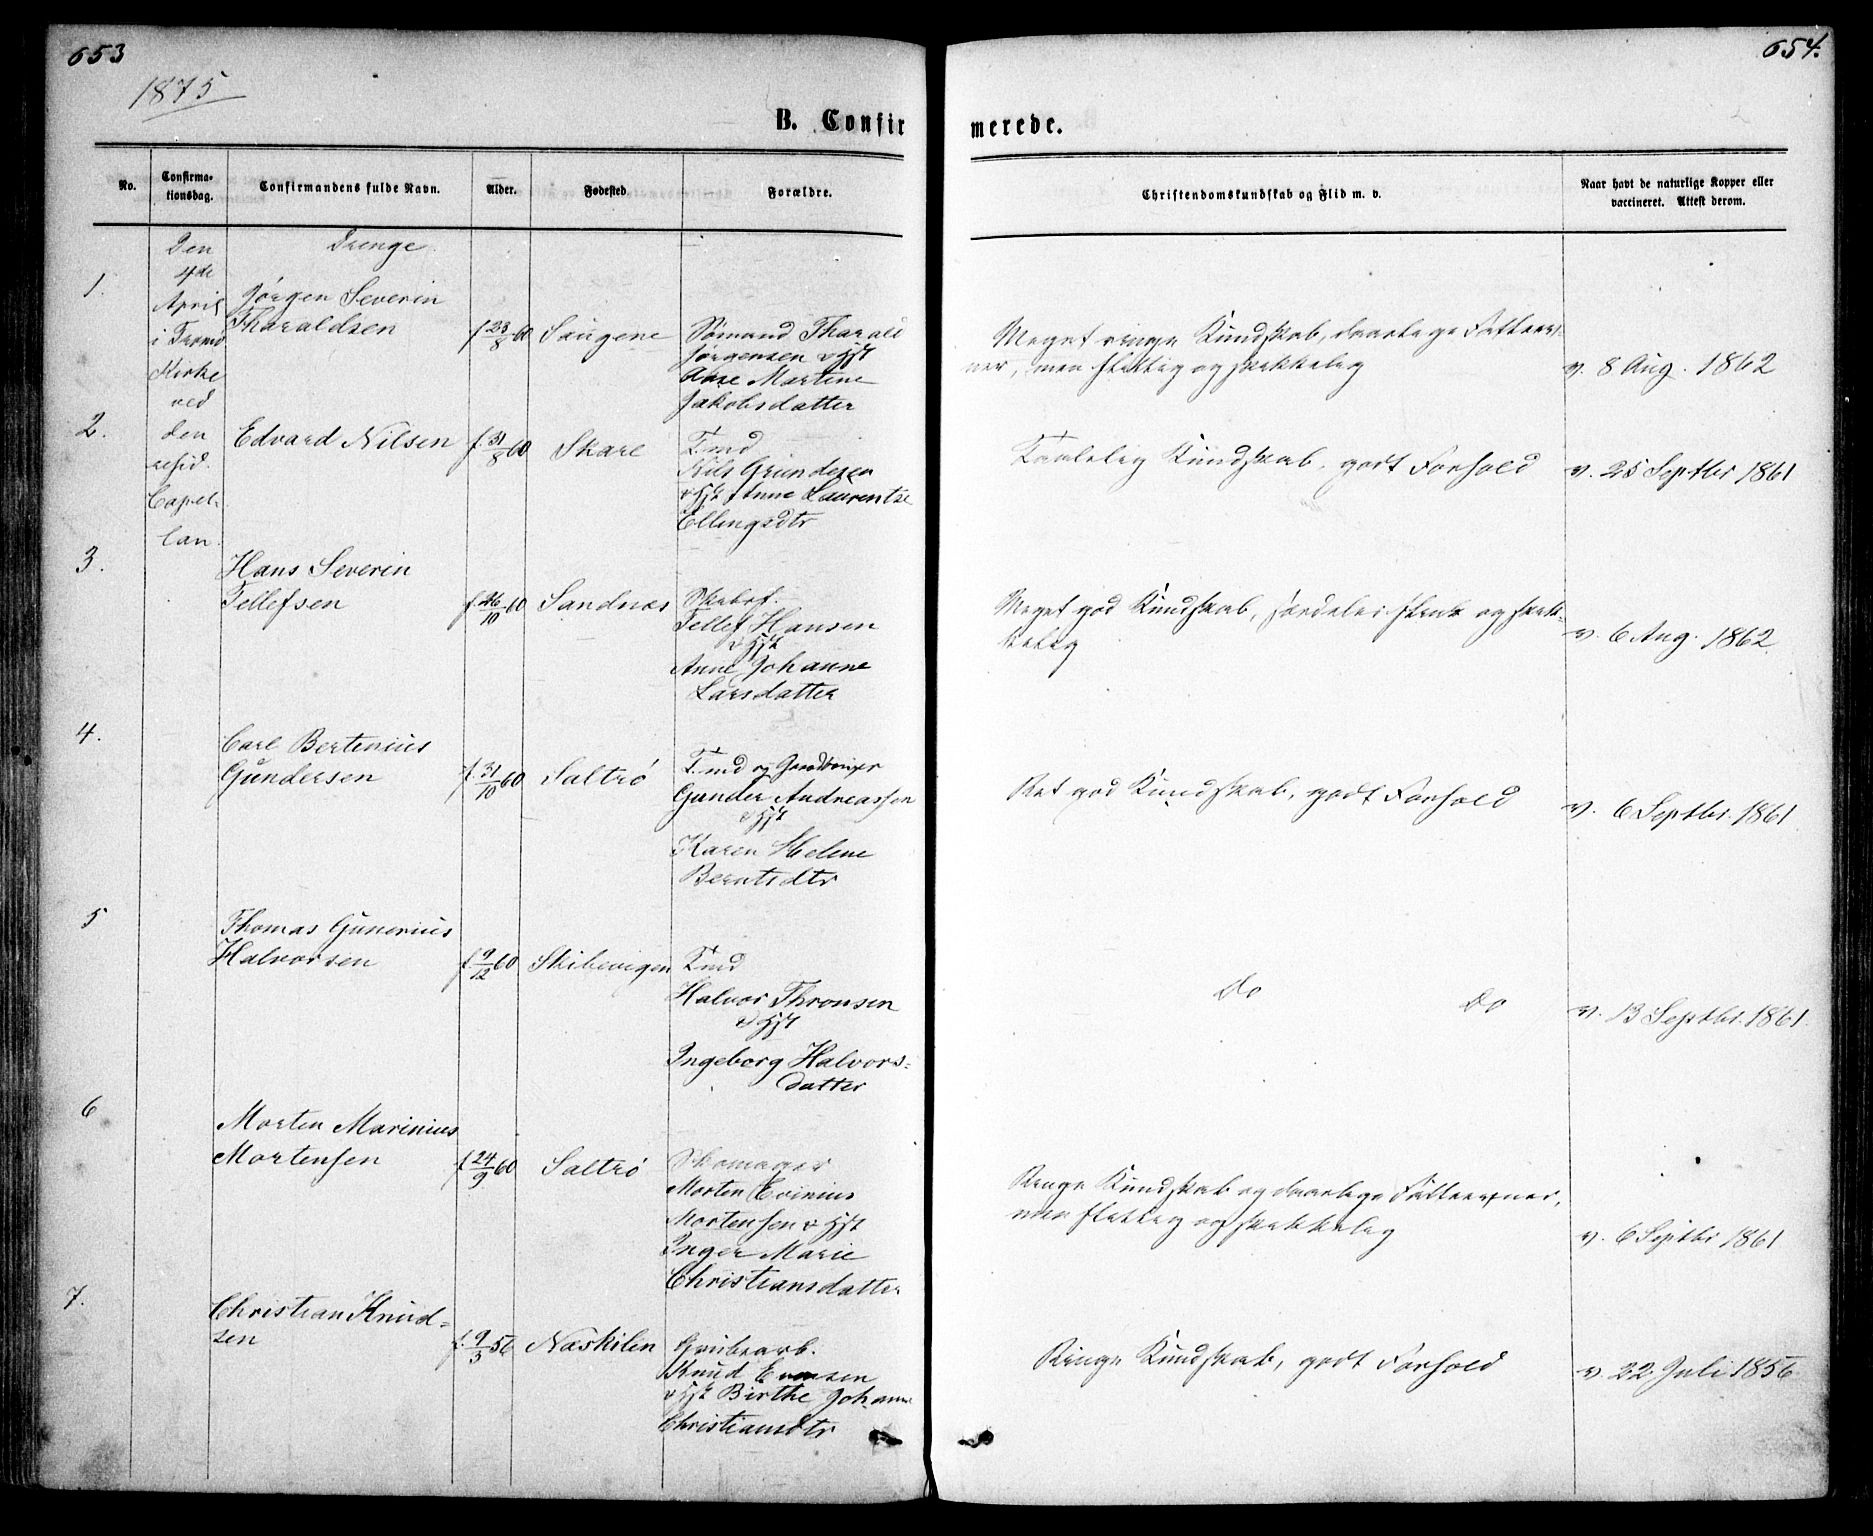 653
654.
1875
B. Confir
merede.
No.
Confirma-
tionsdag.
Confirmandens fulde Navn.
Alder.
Fødested
Forældre.
Christendomskundskab og Flid m. v.
Naar havt de naturlige Kopper eller
vaccineret. Attest derom.
Den
4de
April
i Tromø
Kirke
ved
den
resid.
Capel-
lan.
Drenge
1.
Jørgen Severin
Tharaldsen
f 23/8 60
Saugene
Sømand Tharald
Jørgensen & Hst
Ane Martine
Jakobsdatter
Meget ringe Kundskab, daarlige Fatteev-
ner, men flittig og skikkelig
v. 8 Aug. 1862
2.
Edvard Nilsen
f. 31/8 60
Skare
T.md
Nils Gundesen
& Hst Anne Laurentze
Ellingsdtr
Taalelig Kundskab, godt Forhold
v. 25 Septbr 1861
3.
Hans Severin
Tellefsen
f. 26/10 60
Sandnæs
Skibsf.
Tellef Hansen
& Hst
Anne Johanne
Larsdatter
Meget god Kundskab, særdeles flink og skik-
kelig
v. 6 Aug. 1862
4.
Carl Bertinius
Gundersen
f. 31/10 60
Saltrö
T.md og Gaardbruger
Gunder Andreassen
& Hst
Karen Helene
Berntsdtr
Ret god Kundskab, godt Forhold
v. 6 Septbr. 1861
5
Thomas Gunerius
Halvorsen
f. 9/12 60
Skibevigen
T.md
Halvor Thronsen
& Hst
Ingeborg Halvors-
datter
do do
v. 13 Septbr. 1861.
6
Morten Marinius
Mortensen
f. 24/9 60
Saltrö
Skomager
Morten Evinius
Mortensen & Hst
Inger Marie
Christiansdatter
Ringe Kundskab og daarlige Fatteevner,
men flittig og skikkelig
v. 6 Septbr 1861
7.
Christian Knud-
sen
f. 9/3 56
Næskilen
Grubearb.
Knud Evensen
& Hst Birthe Johanne
Christiansdtr
Ringe Kundskab, godt Forhold
v. 22 Juli 1856